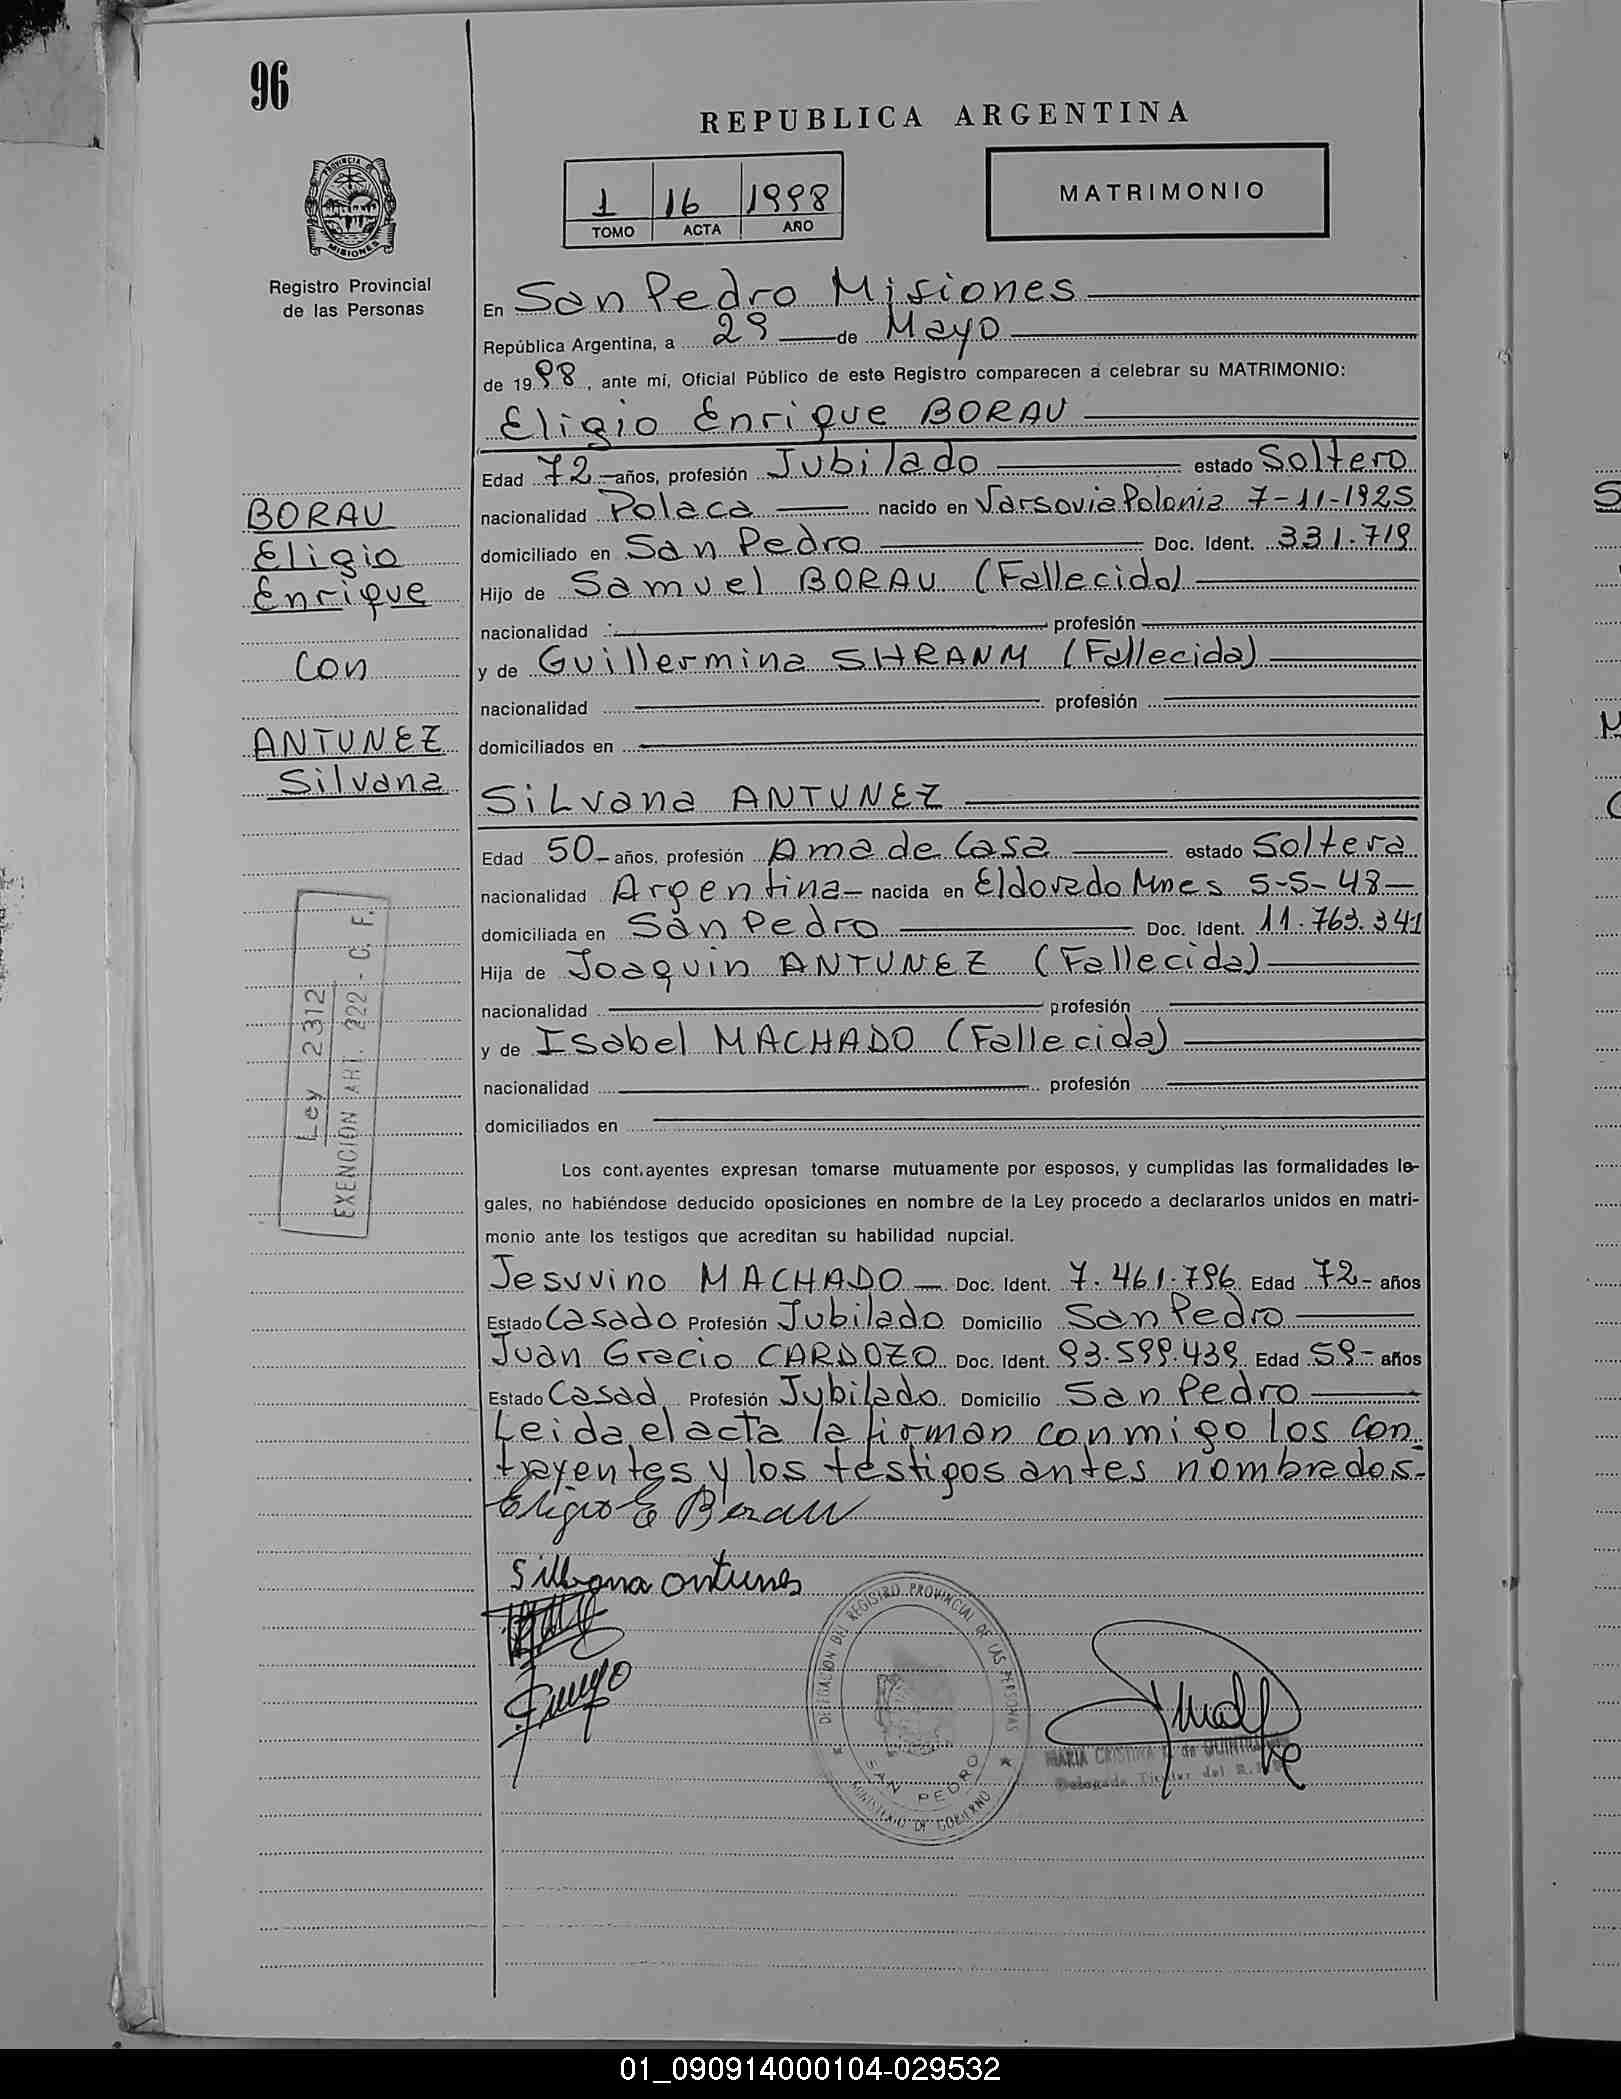 96
REPUBLICA ARGENTINA
PROVINCIA DE
MISIONES
1 16 1998
TOMO ACTA AÑO
MATRIMONIO
Registro Provincial
de las Personas
En San Pedro Misiones
República Argentina, a 29 de Mayo
de 1998, ante mí, Oficial Público de este Registro comparecen a celebrar su MATRIMONIO:
Eligio Enrique BORAU
Edad 72 - años, profesión Jubilado estado Soltero
nacionalidad Polaca nacido en Varsovia Polonia 7-11-1925
domiciliado en San Pedro Doc. Ident. 331.719
Hijo de Samuel BORAU (Fallecido)
nacionalidad profesión
y de Guillermina SHRANM (Fallecida)
nacionalidad profesión
domiciliados en
BORAU
Eligio
Enrique
Con
ANTUNEZ
Silvana
SiLvana ANTUNEZ
Edad 50 - años, profesión Ama de Casa estado Soltera
nacionalidad Argentina - nacida en Eldorado Mnes 5-5-48 -
domiciliada en San Pedro Doc. Ident. 11.763.341
Hija de Joaquin ANTUNEZ (Fallecida)
nacionalidad profesión
y de Isabel MACHADO (Fallecida)
nacionalidad profesión
domiciliados en
Ley 2312
EXENCIÓN ART. 222 - C. F.
Los contrayentes expresan tomarse mutuamente por esposos, y cumplidas las formalidades le-
gales, no habiéndose deducido oposiciones en nombre de la Ley procedo a declararlos unidos en matri-
monio ante los testigos que acreditan su habilidad nupcial.
Jesuvino MACHADO - Doc. Ident. 7.461.796 Edad 72 - años
Estado Casado Profesión Jubilado Domicilio San Pedro
Juan Gracio CARDOZO Doc. Ident. 93.599.439 Edad 59 - años
Estado Casad Profesión Jubilado Domicilio San Pedro
Leida el acta la firman conmigo los con-
trayentes y los testigos antes nombrados.-
Eligio E Borau
Silbana antunes
DELEGACION DEL REGISTRO PROVINCIAL DE LAS PERSONAS
SAN PEDRO
MINISTERIO DE GOBIERNO
MARIA CRISTINA de
Delegada Titular del R.
01_090914000104-029532